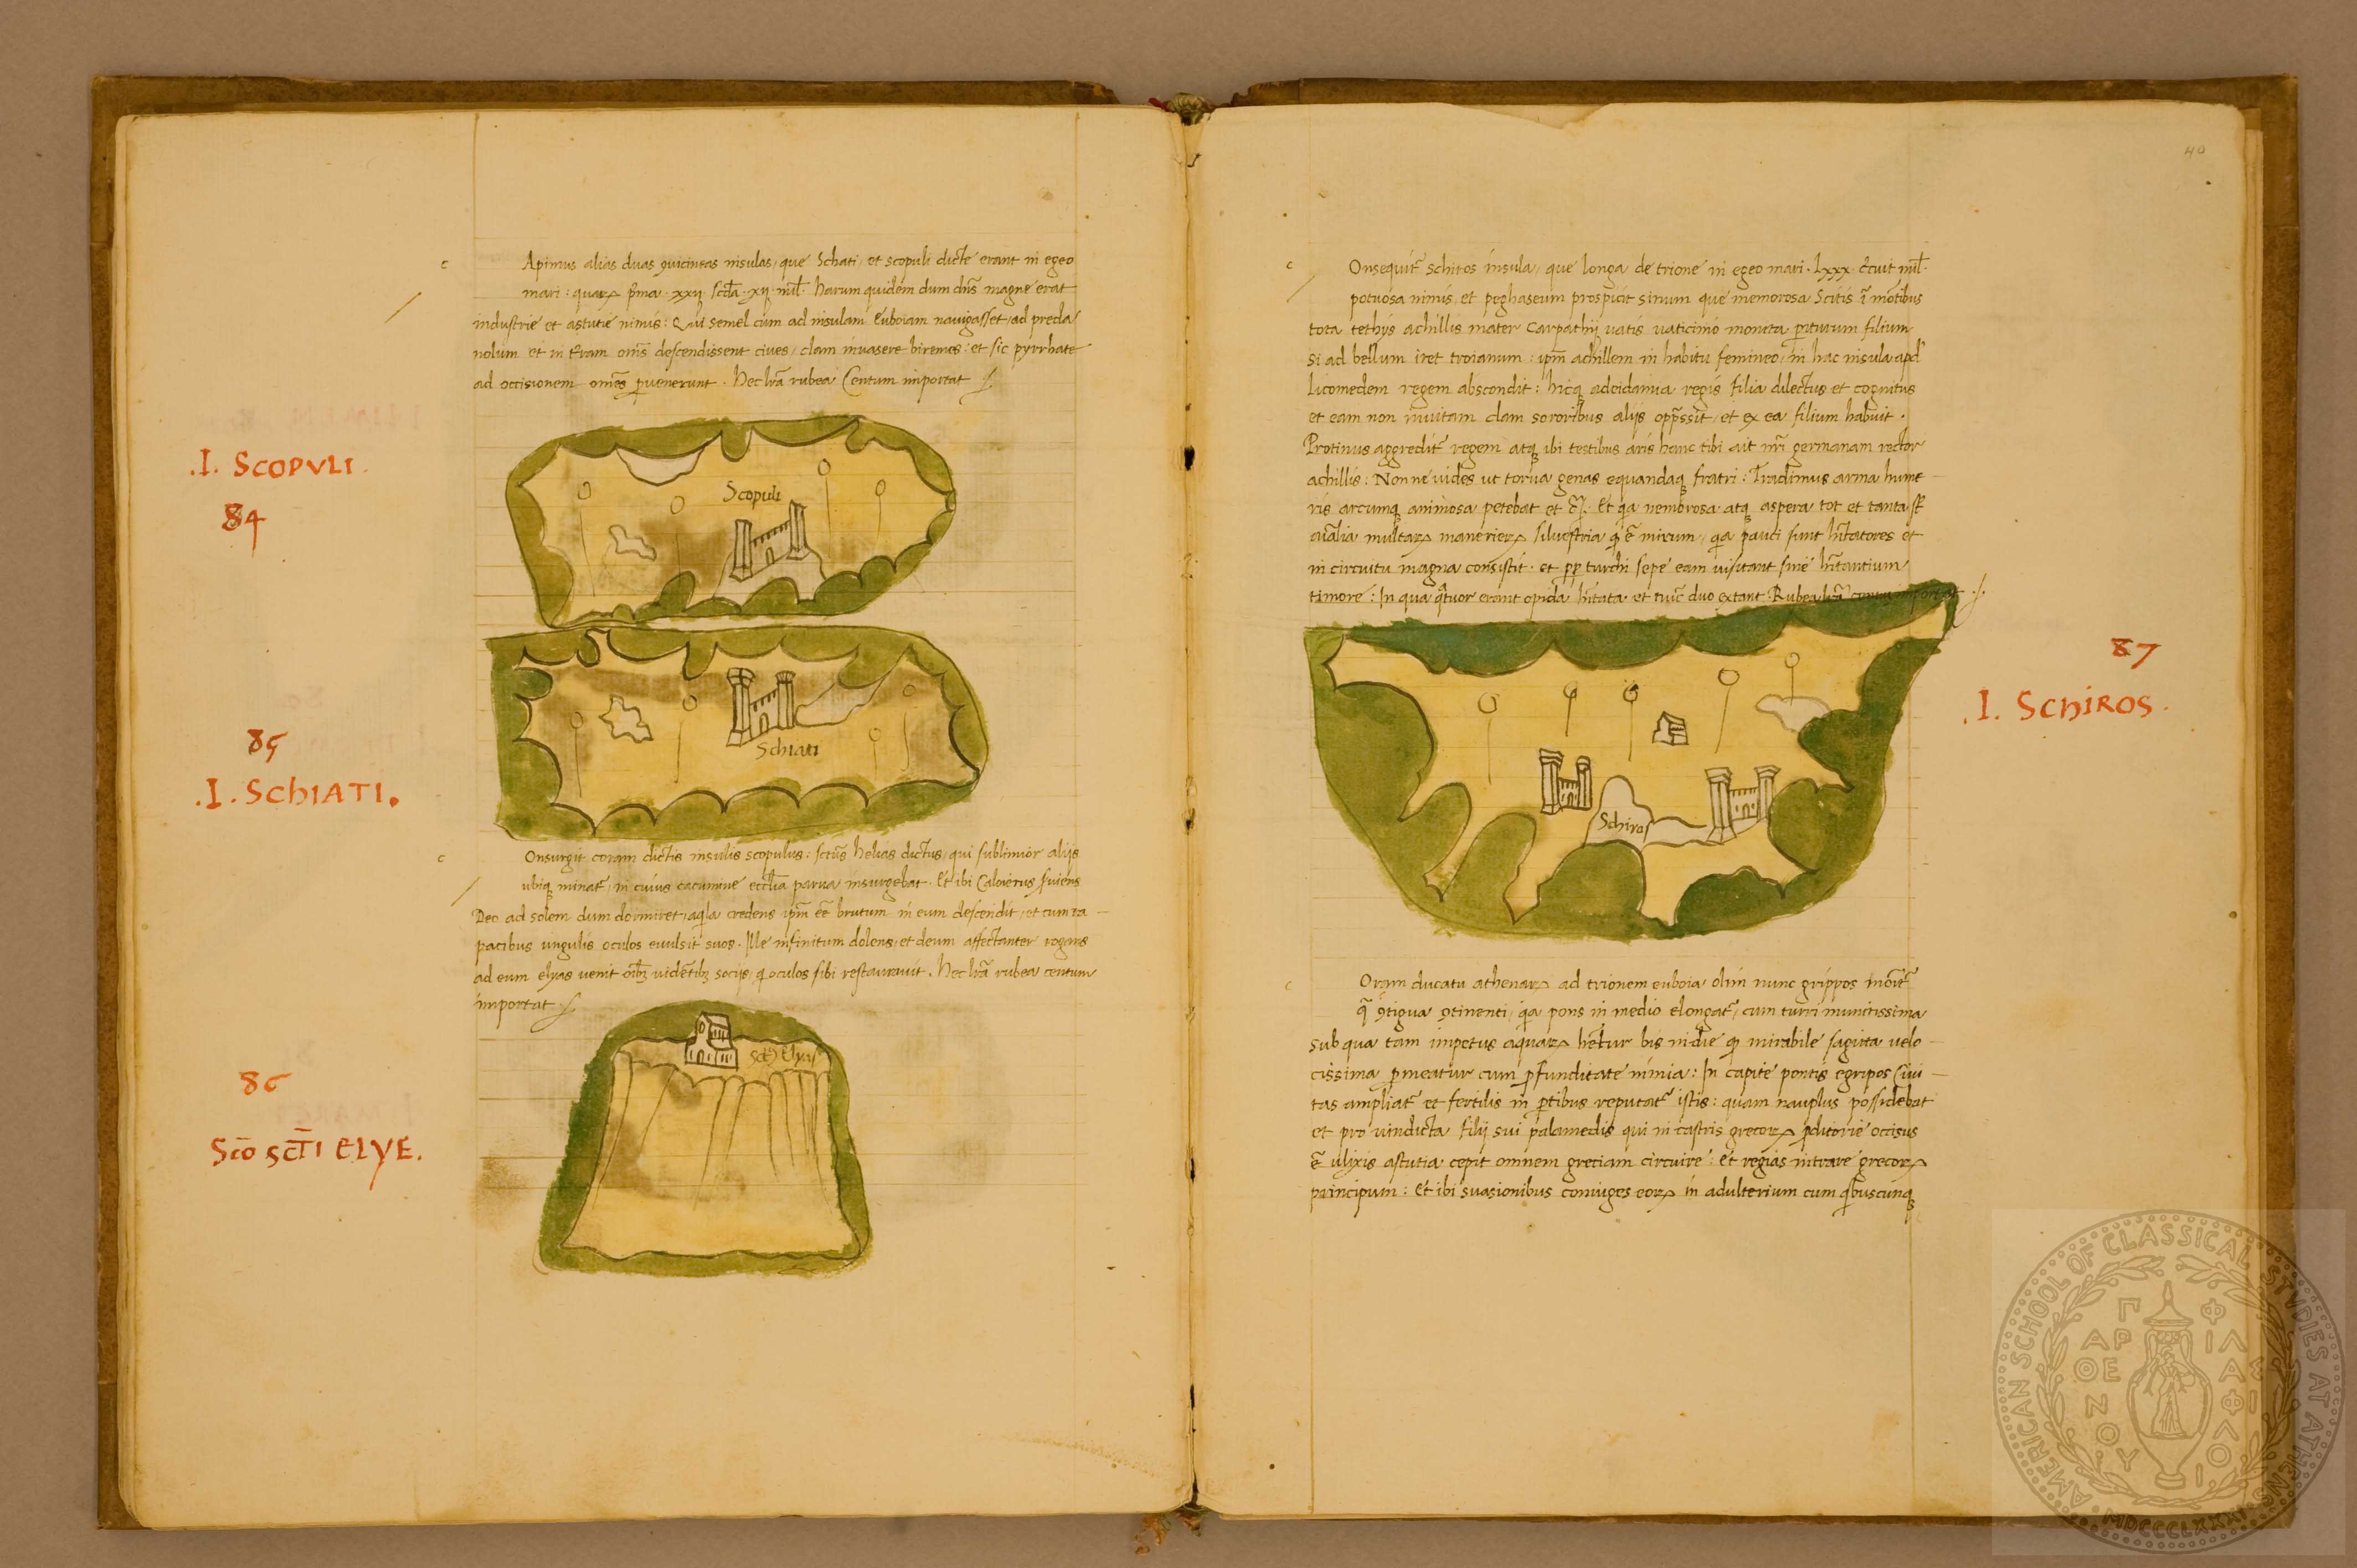 c
Apimus alias duas ꝯuicineas insulas, que Schati, et scopuli dicte erant in egeo
mari: quaꝝ p̄ma .xxij. scďa .xij. mil̄. harum quidem dum dn̄s magne erat
industrie et astutie nimis: Qui semel cum ad insulam Euboiam nauigasset, ad preda
nolum et in t̄ram om̄s descendissent ciues, clam inuasere biremes: et sic pyrrhate
ad occisionem om̄es ꝑuenerunt. Hec lr̄a rubea Centum importat
.I. SCOPVLI.
84
Scopuli
85
.I. SChIATI.
Schiati
c
Onsurgit coram dictis insulis scopulus: sctūs helias dictus, qui sublimior alijs
ubiqꝫ minat᷑, in cuius cacumine eccl̄ia parua insurgebat. Et ibi Caloierus ſuiens
Deo ad solem dum dormiret, aq̇la credens ip̄m eē brutum in eum descendit, et cum ra
pacibus ungulis oculos euulsit suos. Ille infinitum dolens, et deum affectanter rogans
ad eum elyas uenit oīb̄ꝫ uidētibꝫ socijs, qͥ oculos sibi restaurauit. Hec lr̄a rubea centum
importat
86
Scō scT̄I ELYE.
Sct̄i Elyas
40
c
Onsequit᷑ schiros insula, que longa de trione in egeo mari. Lxxx. c̄cuit mil̄.
potuosa nimis, et peghaseum prospicit sinum que memorosa Scitis ī mōtibus
tota tethys achillis mater Carpathij uatis uaticinio monita ꝑiturum filium
si ad bellum iret troianum: ip̄m achillem in habitu femineo, in hac insula apď
licomedem regem abscondit: hicqꝫ adeidamia regis filia dilectus et cognitus
et eam non inuitam clam sororibus alijs opp̄ssit, et ex ea filium habuit.
Protinus aggredit᷑ regem atqꝫ ibi testibus aris hanc tibi ait nr̄i germanam rector
achillis: Nonne uides ut torua genas equandaqꝫ fratri: Tradimus arma hume
ris arcumqꝫ animosa petebat et Et qa nembrosa atqꝫ aspera tot et tanta st̄
aīalia multaꝝ manerieꝝ siluestria qͥ ē mirum, qa pauci sunt hītatores et
in circuitu magna consistit. et ꝓp turchi sepe eam uisitant sine hītantium
timore: In qua qͣtuor erant opida hītata et nūc duo extant. Rubea lr̄a centum importat
87
.I. SChIROS.
Schiros
c
Oram ducatu athenaꝝ ad trionem euboia olim nunc grippos
qͣ ꝯtigua ꝯtinenti, qͥa pons in medio elongat᷑, cum turri munitissima
sub qua tam impetus aquaꝝ hētur bis in die qͥ mirabile sagitta uelo
cissima ꝑmeatur cum ꝓfunditate nimia: In capite pontis egripos Ciui
tas ampliat᷑ et fertilis in ꝑtibus reputat᷑ istis: quam nauplus possidebat
et pro uindicta filij sui palamedis qui in castris grecoꝝ ꝓditorie occisus
ē ulixis astutia cepit omnem greciam circuire: Et regias intrare grecoꝝ
principum: Et ibi suasionibus coniuges eoꝝ in adulterium cum qͥbuscunqꝫ
AMERICAN SCHOOL OF CLASSICAL STVDIES AT ATHENS
MDCCCLXXXI
ΠΑΡΘΕΝΟΥ
ΦΙΛΑΣ ΦΙΛΟΙ